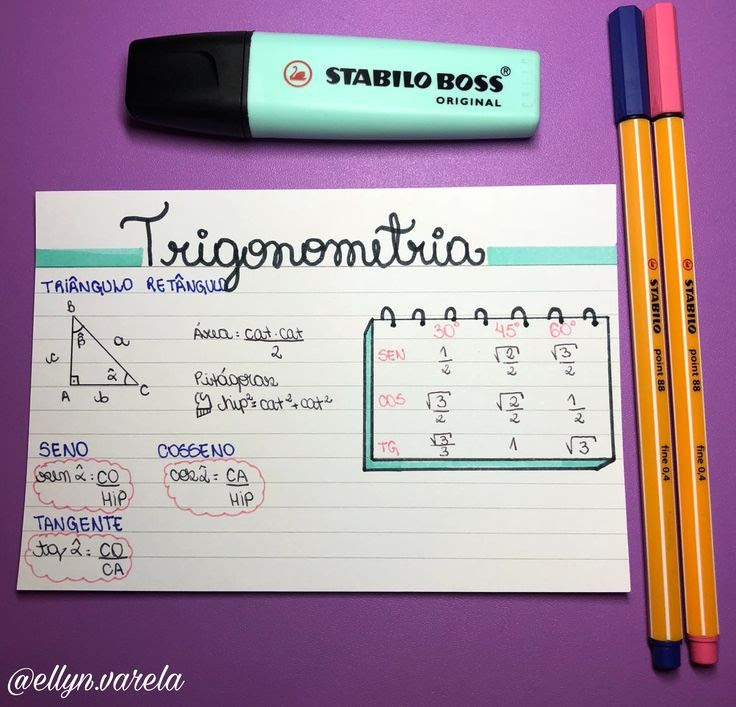 STABILO BOSS®
ORIGINAL
Trigonometria
TRIÂNGULO RETÂNGULO
B
β̂
c
a
α̂
A
b
C
Área = cat · cat
2
Pitágoras
hip² = cat² + cat²
30° 45° 60°
SEN 1/2 √2/2 √3/2
COS √3/2 √2/2 1/2
TG √3/3 1 √3
SENO
sen α̂ = CO
HIP
COSSENO
cos α̂ = CA
HIP
TANGENTE
tg α̂ = CO
CA
STABILO point 88 fine 0,4
STABILO point 88 fine 0,4
@ellyn.varela